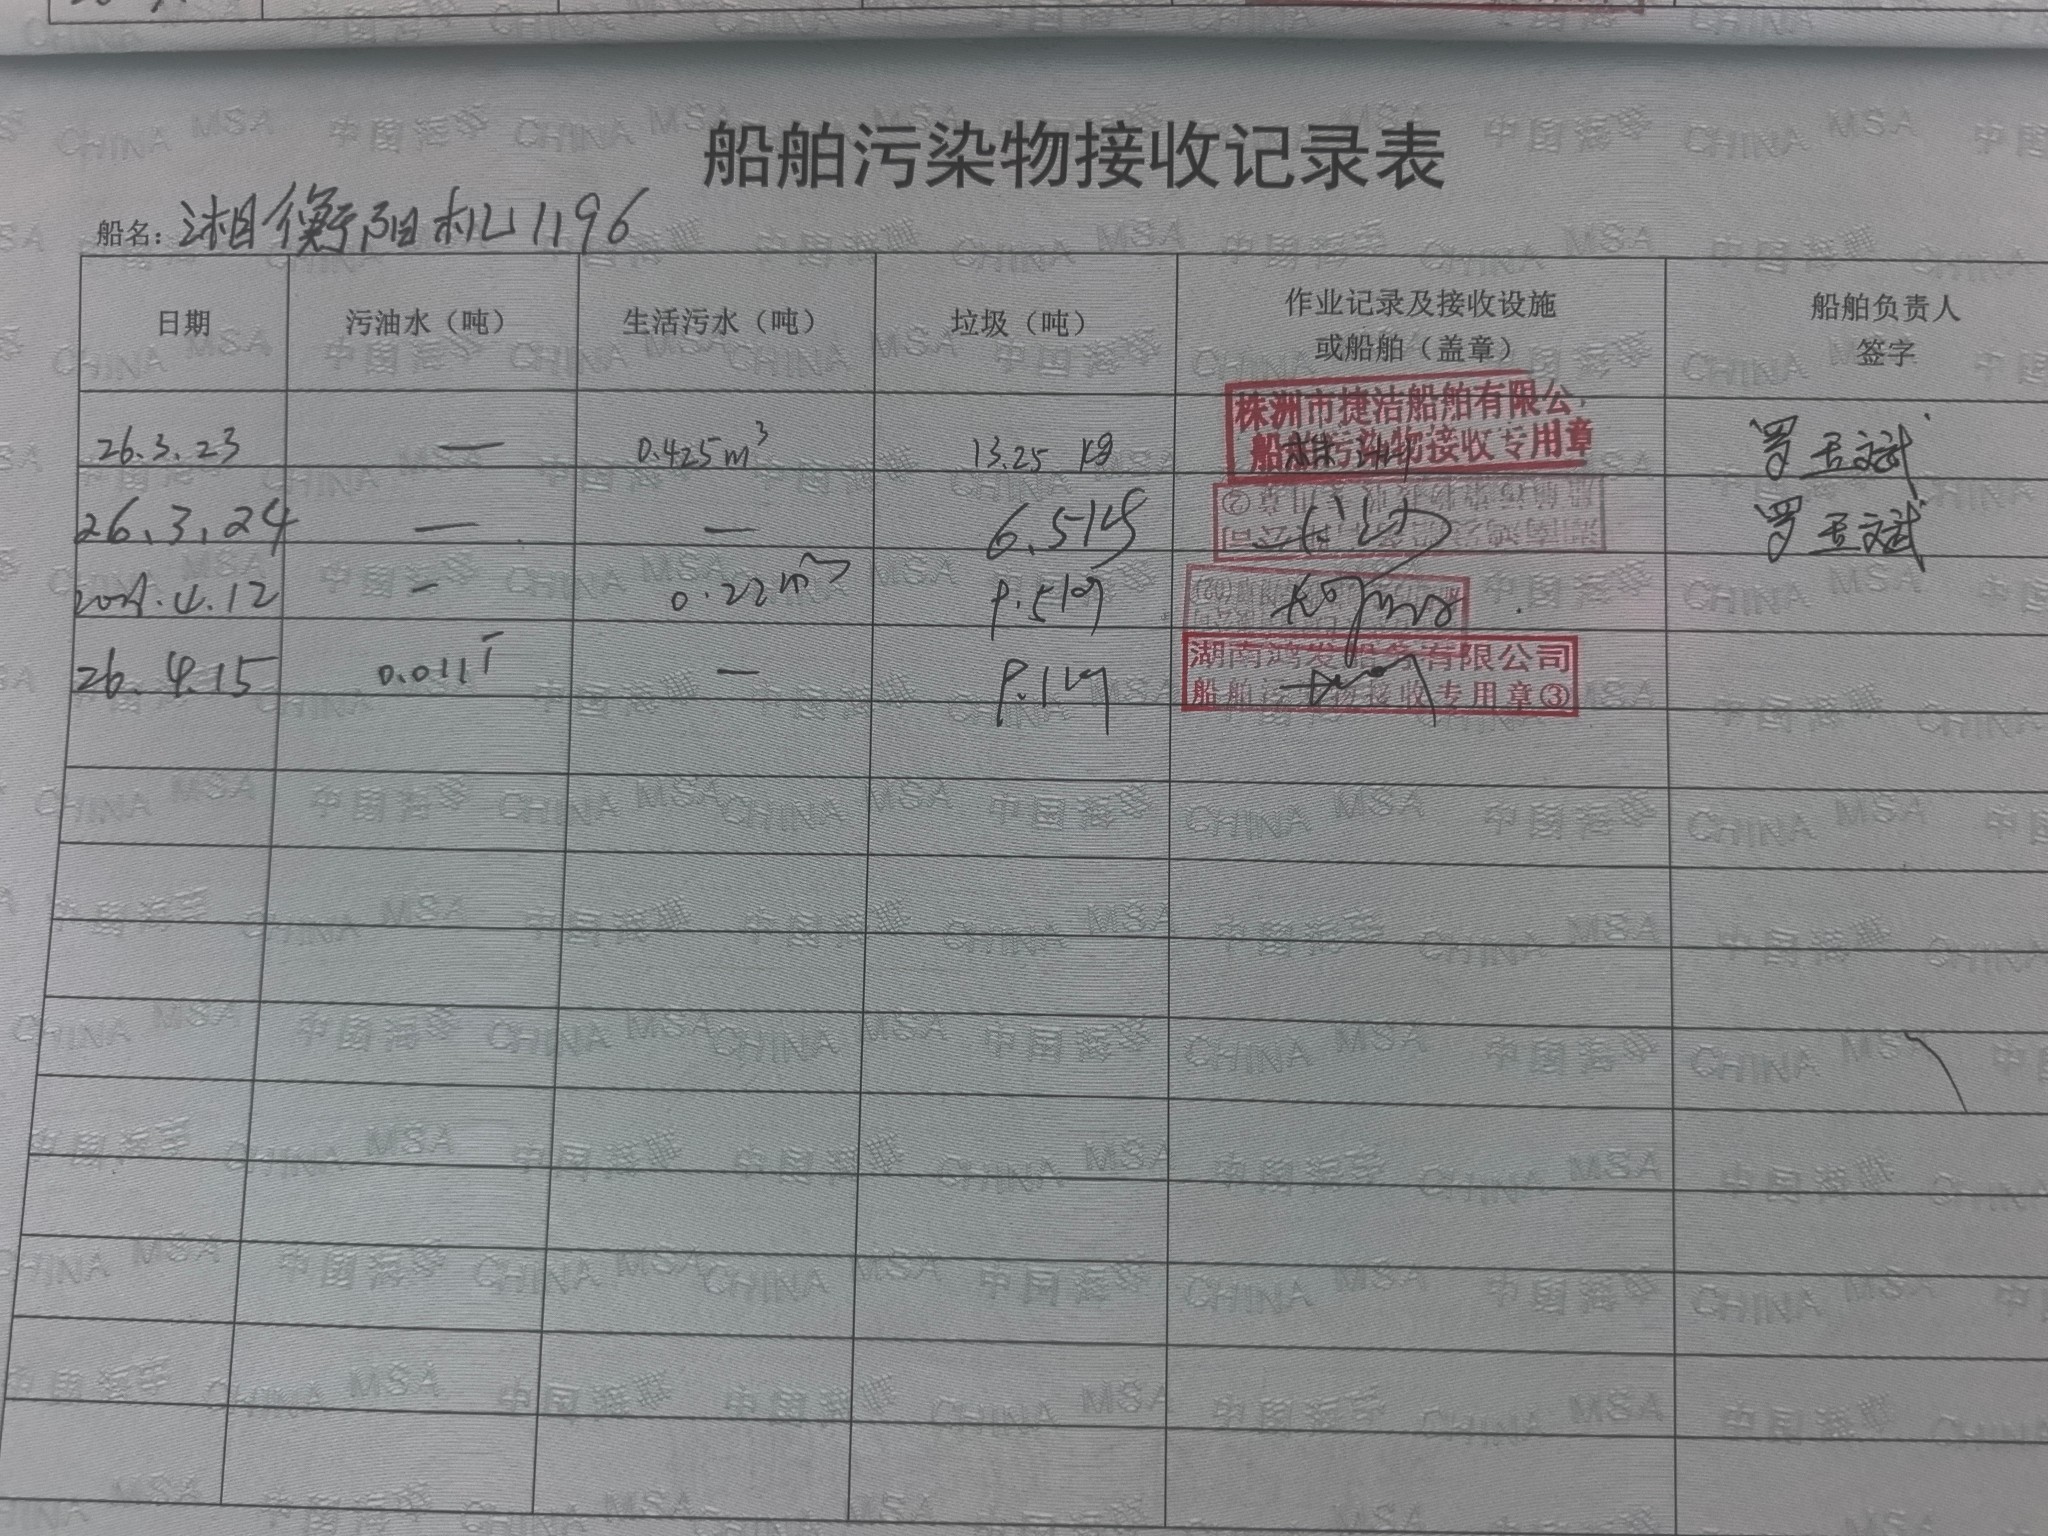 船舶污染物接收记录表
船名：湘衡阳机1196
日期 污油水（吨） 生活污水（吨） 垃圾（吨） 作业记录及接收设施或船舶（盖章） 船舶负责人签字
26.3.23 — 0.425m³ 13.25 kg 株洲市捷洁船舶有限公 船舶污染物接收专用章 罗玉斌
26.3.24 — — 6.5kg 罗玉斌
4.12 — 0.22m³ 9.5kg
26.4.15 0.011T — 9.1kg 湖南鸿发船务有限公司 船舶污染物接收专用章③